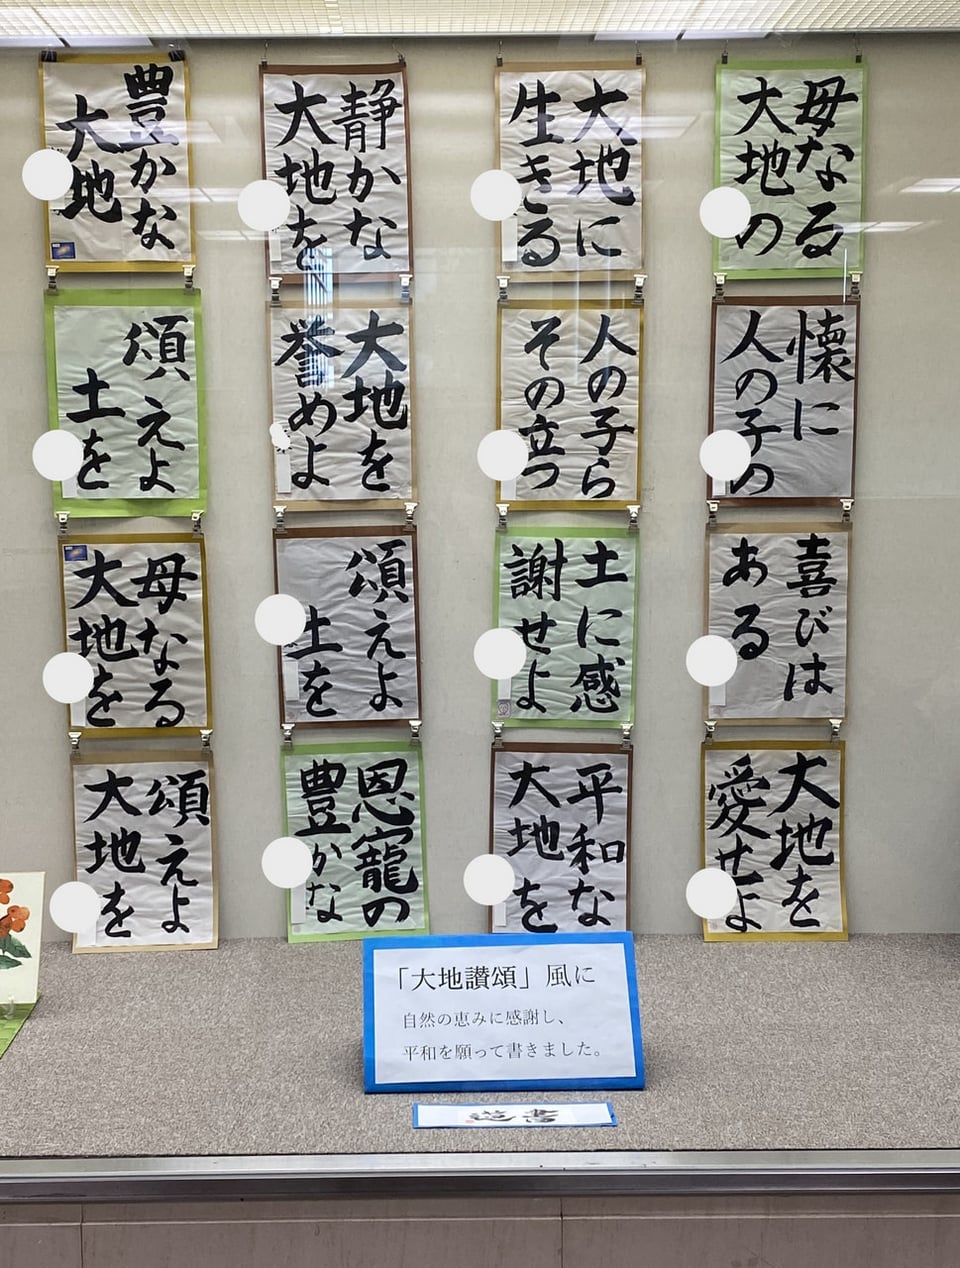 母なる
大地の
懐に
人の子の
喜びは
ある
大地を
愛せよ
大地に
生きる
人の子ら
その立つ
土に感
謝せよ
平和な
大地を
静かな
大地を
大地を
誉めよ
頌えよ
土を
恩寵の
豊かな
豊かな
大地
頌えよ
土を
母なる
大地を
頌えよ
大地を
「大地讃頌」風に
自然の恵みに感謝し、
平和を願って書きました。
書道